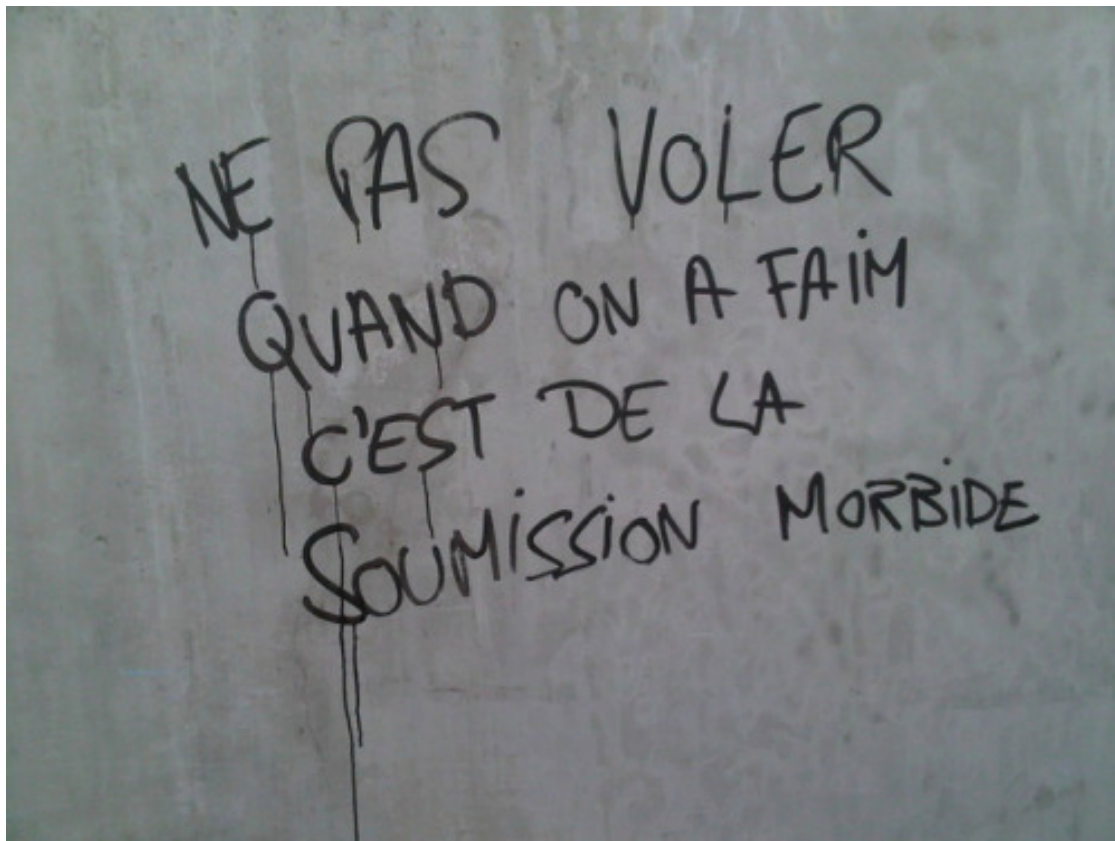 NE PAS VOLER
QUAND ON A FAIM
C'EST DE LA
SOUMISSION MORBIDE